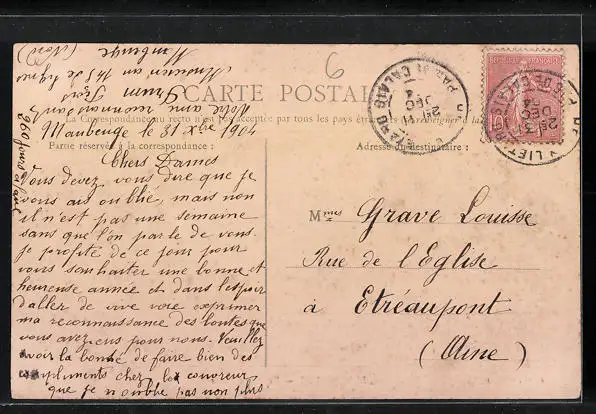 6
CARTE POSTALE
La Correspondance au recto n'est pas acceptée par tous les pays étrangers (Se renseigner à la
Partie réservée à la correspondance :
Adresse du destinataire :
Maubeuge le 31 Xbre 1904
Chers Dames
Vous devez vous dire que je
vous ais oublié, mais non
il n'est pas une semaine
sans que l'on parle de vous.
Je profite de ce jour pour
vous souhaiter une bonne et
heureuse année et dans l'espoir
d'aller de vive voie exprimer
ma reconnaissance des boutes que
vous avez eus pour nous. Veuillez
avoir la bonté de faire bien des
compliments chez le couvreur
que je n'oublie pas non plus
Votre ami reconnaissant
Musicien au 145 de ligne
Maubeuge
(Nord)
Mmes Grave Louisse
Rue de l'Eglise
à Etréaupont
(Aisne)
REPUBLIQUE FRANÇAISE
10
PAS DE CALAIS
DEC
04
PAS DE CALAIS
DEC
04